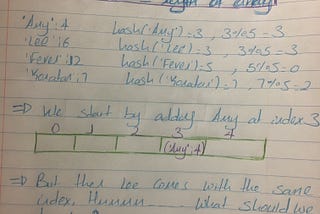 length of array
'Any': 4 hash('Any') = 3, 3%5 = 3
'Lee': 6 hash('Lee') = 3, 3%5 = 3
'Fever': 12 hash('Fever') = 5, 5%5 = 0
'Karatar': 7 hash('Karatar') = 7, 7%5 = 2
=> We start by adding Any at index 3
0 1 2 3 4
('Any', 4)
=> But then Lee comes with the same
index, Hummm...... What should we